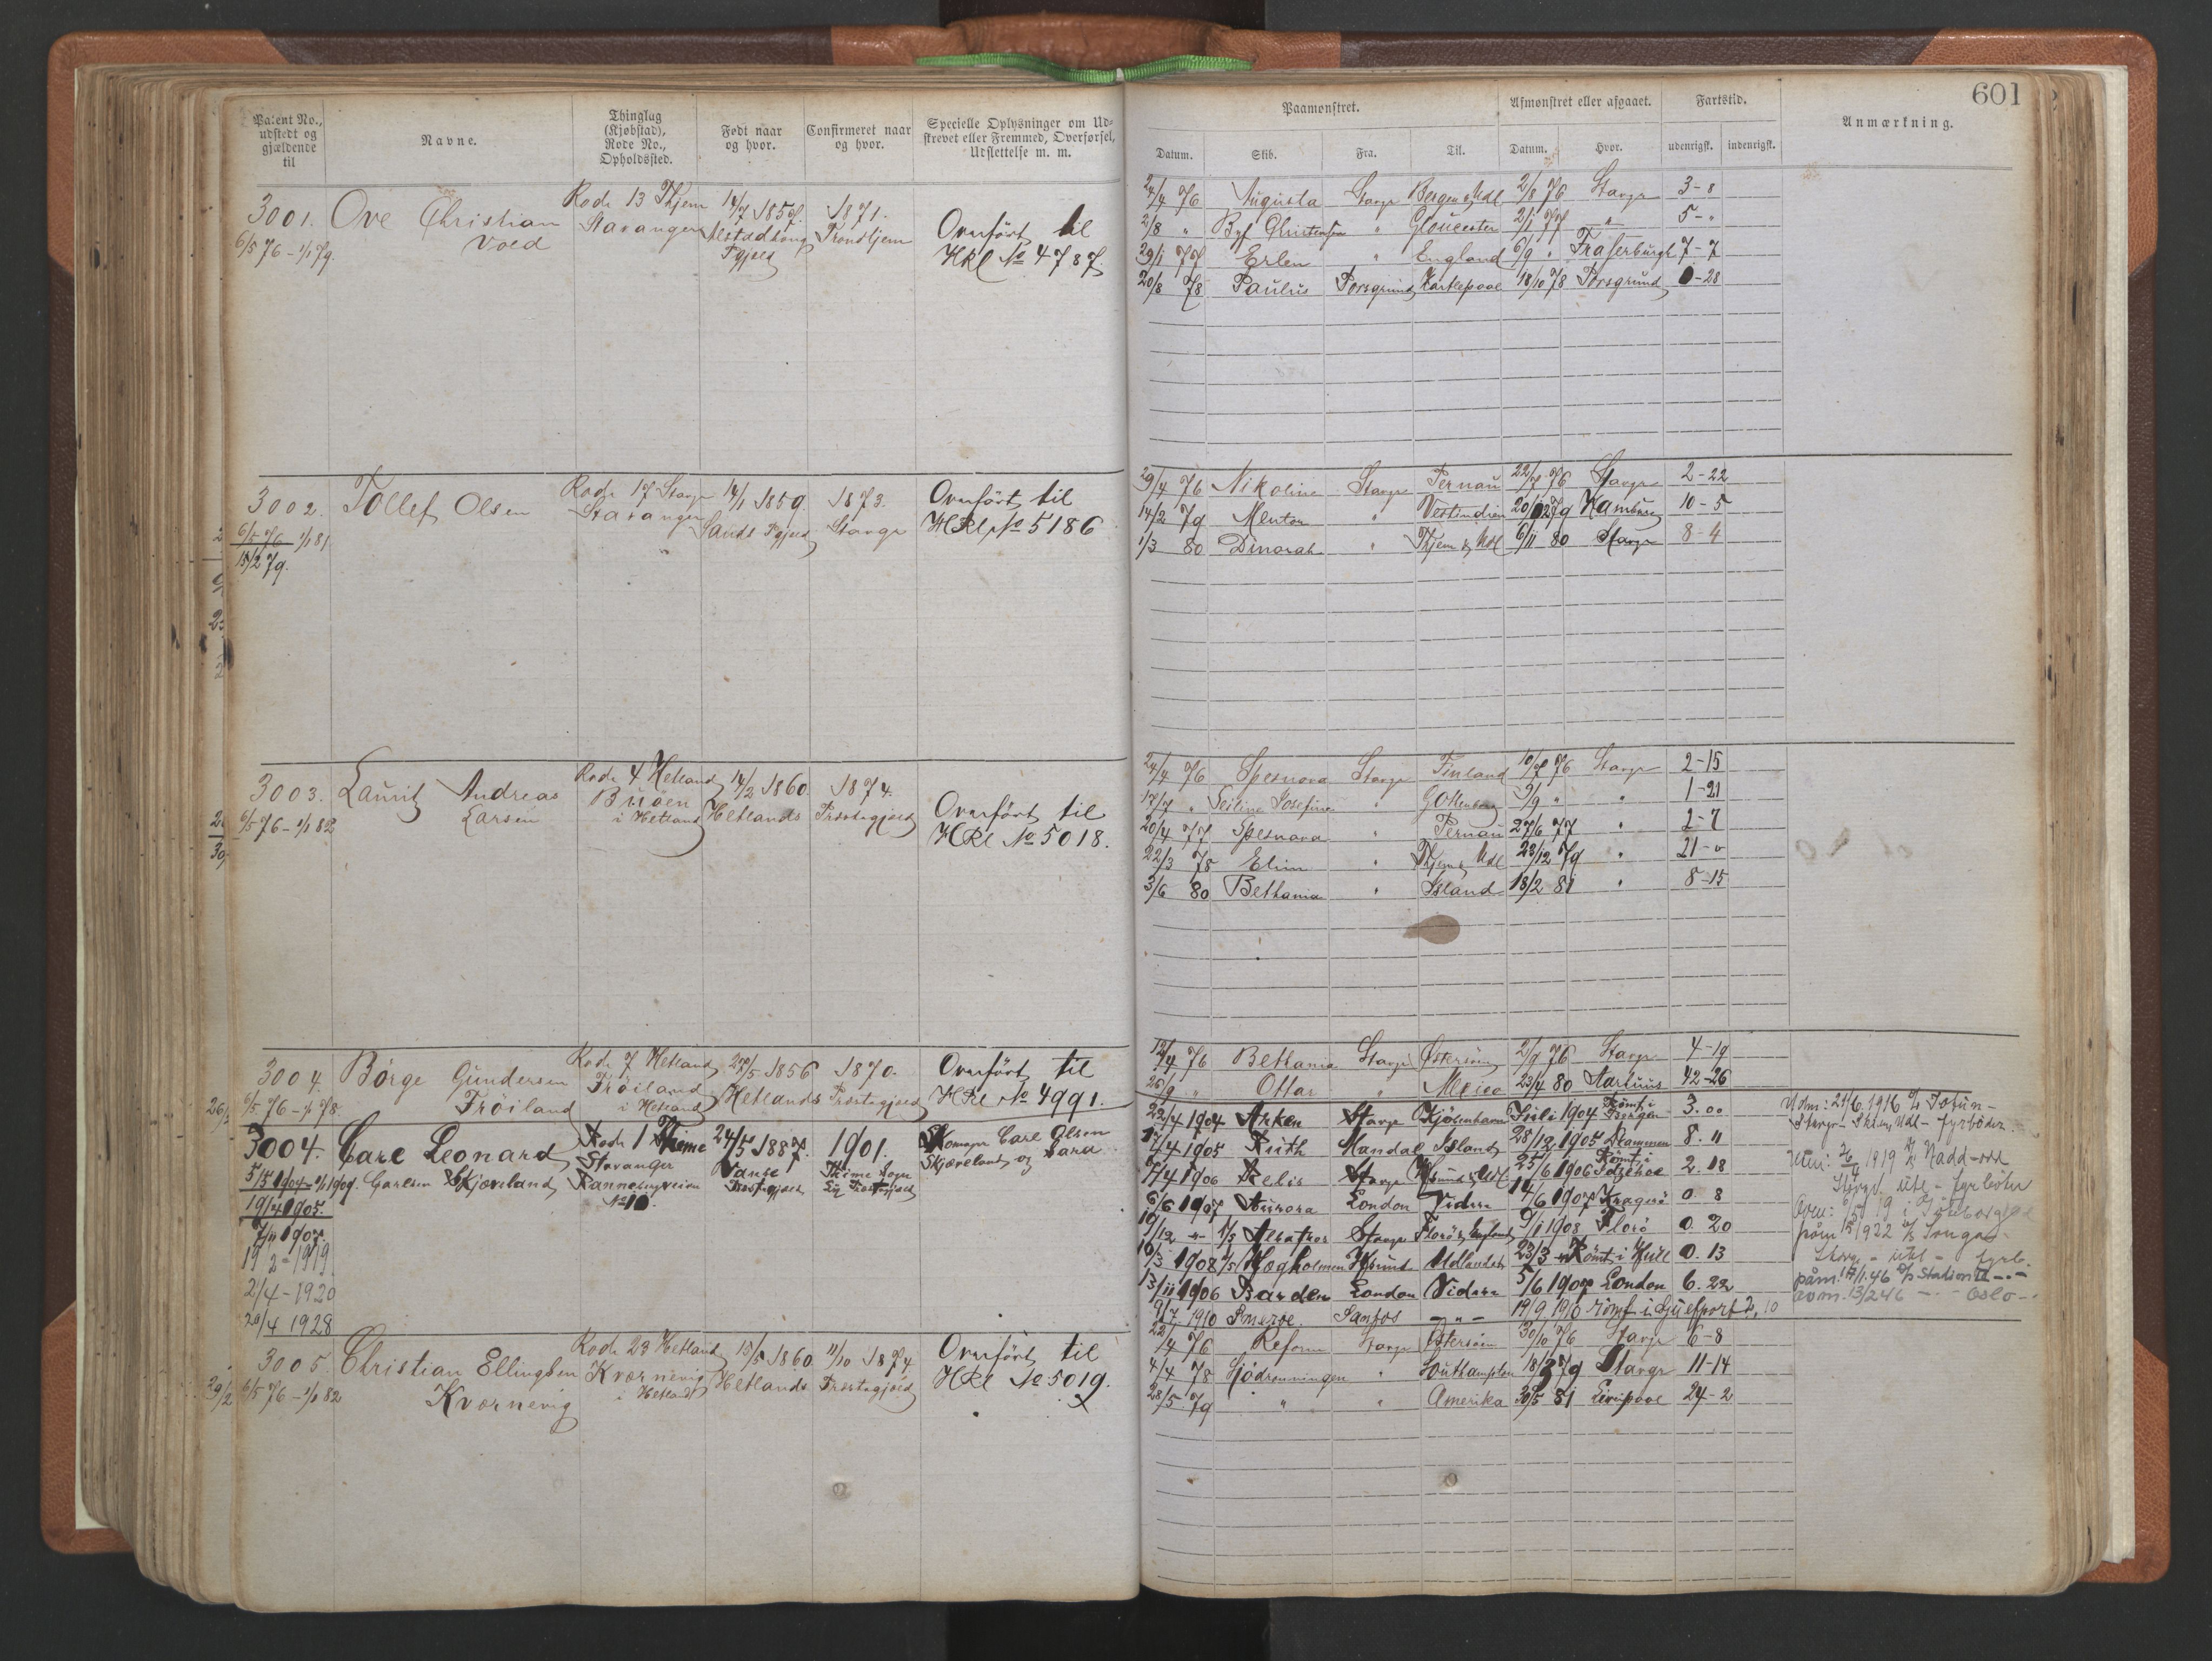 601
Patent No., udstedt og gjældende til
Navne.
Thinglag (Kjøbstad), Rode No., Opholdssted.
Født naar og hvor.
Confirmeret naar og hvor.
Specielle Oplysninger om Udskrevet eller Fremmed, Overførsel, Udslettelse m. m.
Paamønstret.
Afmønstret eller afgaaet.
Fartstid.
Anmærkning.
Datum. Skib. Fra. Til. Datum. Hvor. udenrigsk. indenrigsk.
3001. Ove Christian Rode 13 Thjem 14/7 1857. 1871. Overført til
6/5 76 - 1/1 79. Vold Stavanger Trondhjem HRl No 4787.
24/4 76 Augusta Stavgr Bergen & Udl 2/8 76 Stavgr 3-8
2/8 " Christensen " Gloucester 2/1 77 " 5-"
29/1 77 Erlen " England 6/9 " Fraserburgh 7-7
20/8 78 Paulus Porsgrund Hartlepool 18/10 78 Porsgrund 0-28
3002. Tollef Olsen Rode 17 Stavgr 14/1 1859. 1873. Overført til
6/5 76 1/1 81 Stavanger Sands Pgjeld Stavgr HRl No 5186
15/2 79.
29/4 76 Nikoline Stavgr Pernau 22/7 76 Stavgr 2-22
14/2 79 Mentor " Vestindien 20/12 79 Hamburg 10-5
1/3 80 Dinorah " Thjem & Udl 6/11 80 Stavgr 8-4
3003. Lauritz Andreas Rode 4 Hetland 14/2 1860 1874. Overført til
6/5 76 - 1/1 82 Larsen Buøen i Hetland Hetlands Præstegjeld HRl No 5018.
24/4 76 Spesnova Stavgr Finland 10/7 76 Stavgr 2-15
17/7 " Seiline Josefine " Gottenborg 3/9 " " 1-21
20/4 77 Spesnova " Pernau 27/6 77 " 2-7
22/3 78 Elim " Thjem & Udl 23/12 79 " 21-0
3/6 80 Bethania " Island 18/2 81 " 8-15
3004. Børge Gundersen Rode 7 Hetland 29/5 1856 1870. Overført til
6/5 76 - 1/1 78. Frøiland Frøiland i Hetland Hetlands Præstegjeld HRl No 4991.
12/4 76 Bethania Stavgr Østersøen 2/9 76 Stavgr 4-19
26/9 " Ottar " Mexico 23/4 80 Aarhuus 42-26
3004. Carl Leonard Rode 1 Thime 24/5 1887. 1901. Skomager Carl Olsen
5/5 1904 - 1/1 1909. Carlsen Skjæveland Stavanger Vanse Præstegjeld Thime Sogn Lye Præstegjeld Skjæveland og Sara
19/4 1905. Rannebergveien
7/11 1907. No 10.
19/2 - 1919
2/4 - 1920
20/4 1928
22/4 1904 Anken Stavgr Kjøbenhavn 1904 Rømt i Bergen 3.00
17/4 1905 Ruth Mandal Island 28/12 1905 Drammen 8.11
7/4 1906 Stavgr 25/6 1906 Rømt i Itzehoe 2.18
6/6 1907 Aurora London Videre 14/6 1907 Kragerø 0.8
19/12 " Albatros Stavgr Florø & England 9/1 1908 Florø 0.20
10/3 1908 Hægholmen Udlandet 23/3 " Rømt i Hull 0.13
13/11 1906 Barden London Videre 5/6 1907 London 6.22
9/7 1910 Santos - " - 19/9 1910 rømt i Gulfport 2.10
Udm: 21/6 1916 Jotun -
Stavgr - Udl - fyrbøder
1919 Nadd-odd
Stavgr. utl - fyrbøter
påm 1922 Songa -
Stavgr - utl - fyrb.
påm. 17/1.46 Station II -.-
avm. 13/2 46 - - Oslo -.
3005. Christian Ellingsen Rode 23 Hetland 15/5 1860. 11/10 1874 Overført til
6/5 76 - 1/1 82 Kværnevig Kværnevig i Hetland Hetlands Præstegjeld HRl No 5019.
22/4 76 Reform Stavgr Østersøen 30/10 76 Stavgr 6-8
4/4 78 Sjødronningen " Southampton 18/3 79 Stavgr 11-14
28/5 79 " " Amerika 30/5 81 Liverpool 24-2